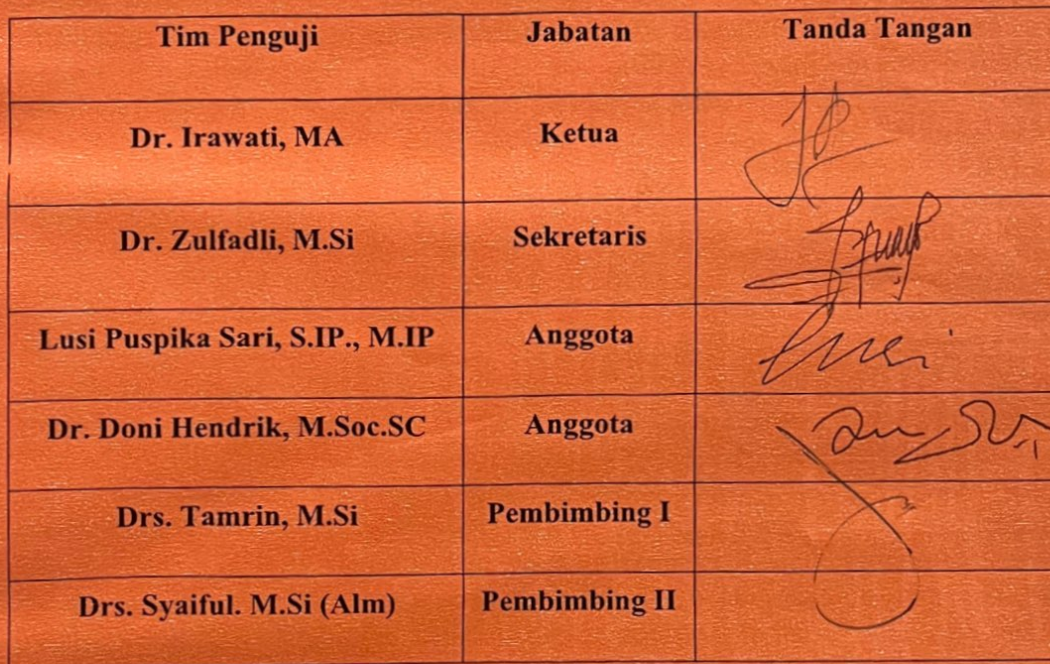 Tim Penguji Jabatan Tanda Tangan
Dr. Irawati, MA Ketua
Dr. Zulfadli, M.Si Sekretaris
Lusi Puspika Sari, S.IP., M.IP Anggota
Dr. Doni Hendrik, M.Soc.SC Anggota
Drs. Tamrin, M.Si Pembimbing I
Drs. Syaiful. M.Si (Alm) Pembimbing II